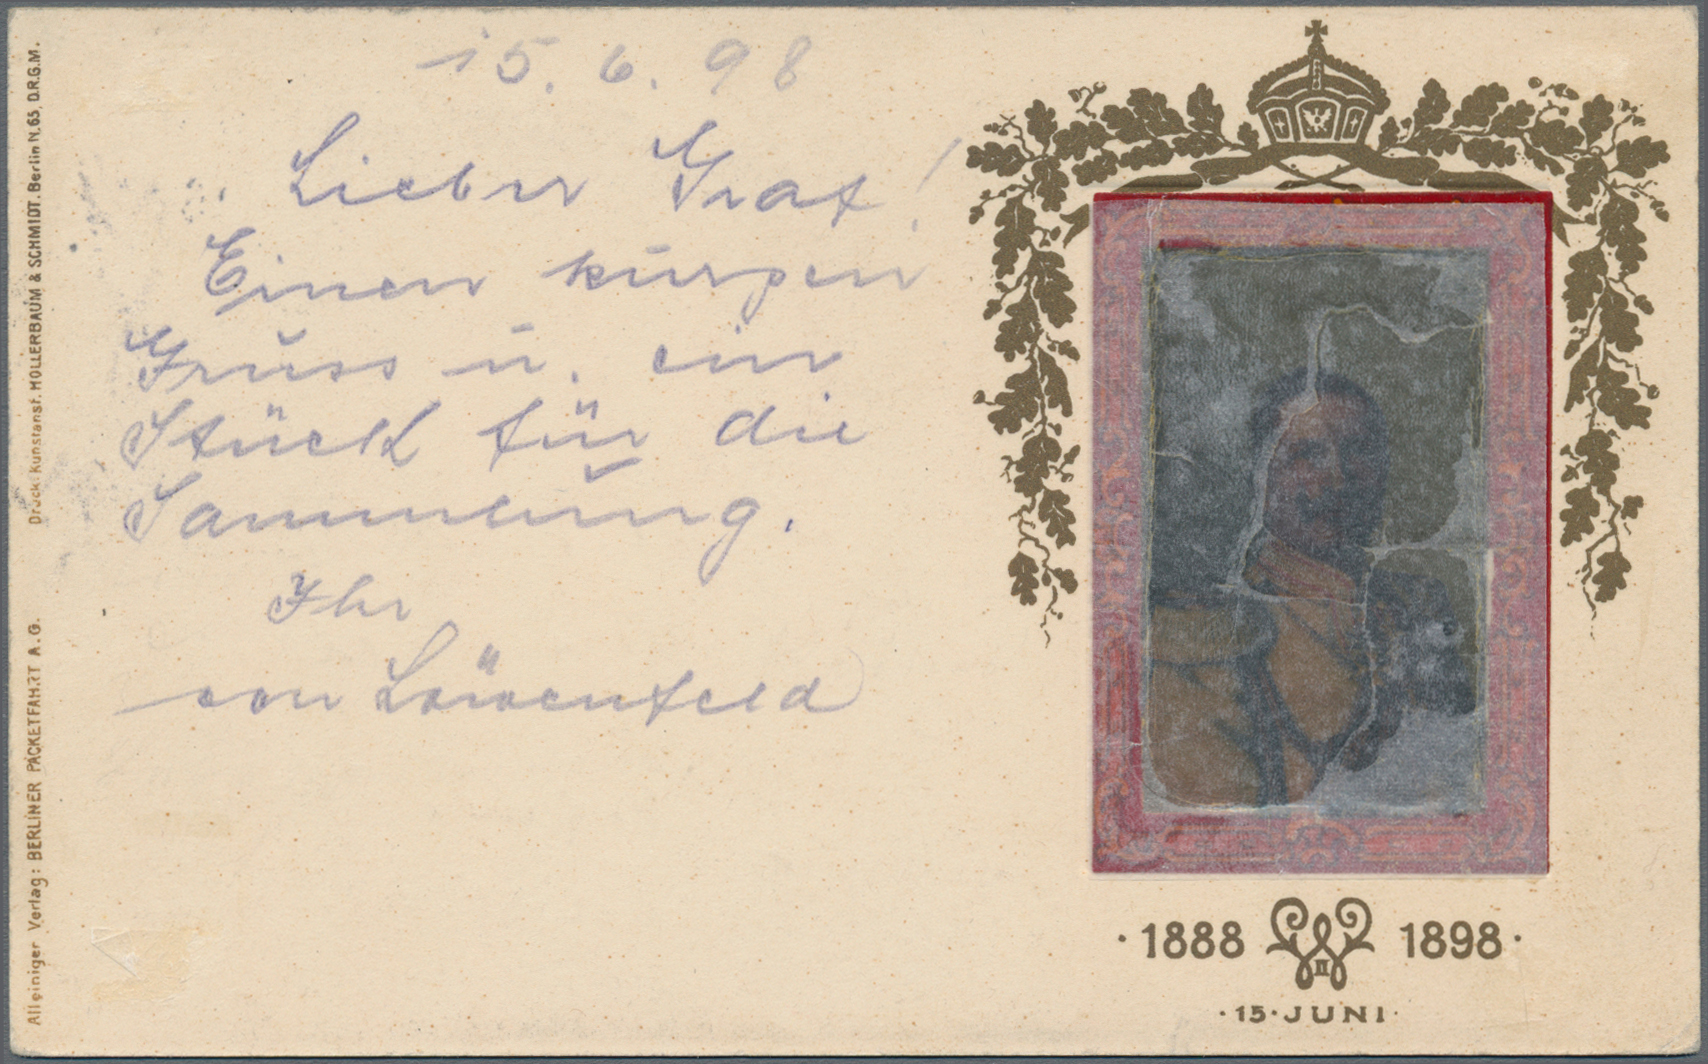 15. 6. 98
Lieber Graf!
Einen kurzen
Gruss u. ein
Stück für die
Sammlung.
Ihr
von Löwenfeld
Druck: Kunstanst. HOLLERBAUM & SCHMIDT. Berlin N.65, D.R.G.M.
Alleiniger Verlag: BERLINER PACKETFAHRT A.G.
·1888 W II 1898·
·15·JUNI·